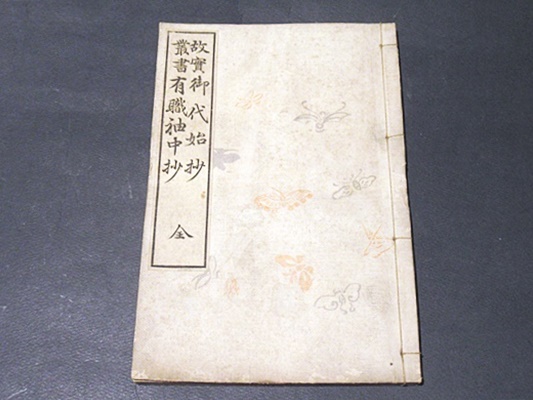 故實御代始抄
叢書有職袖中抄
全